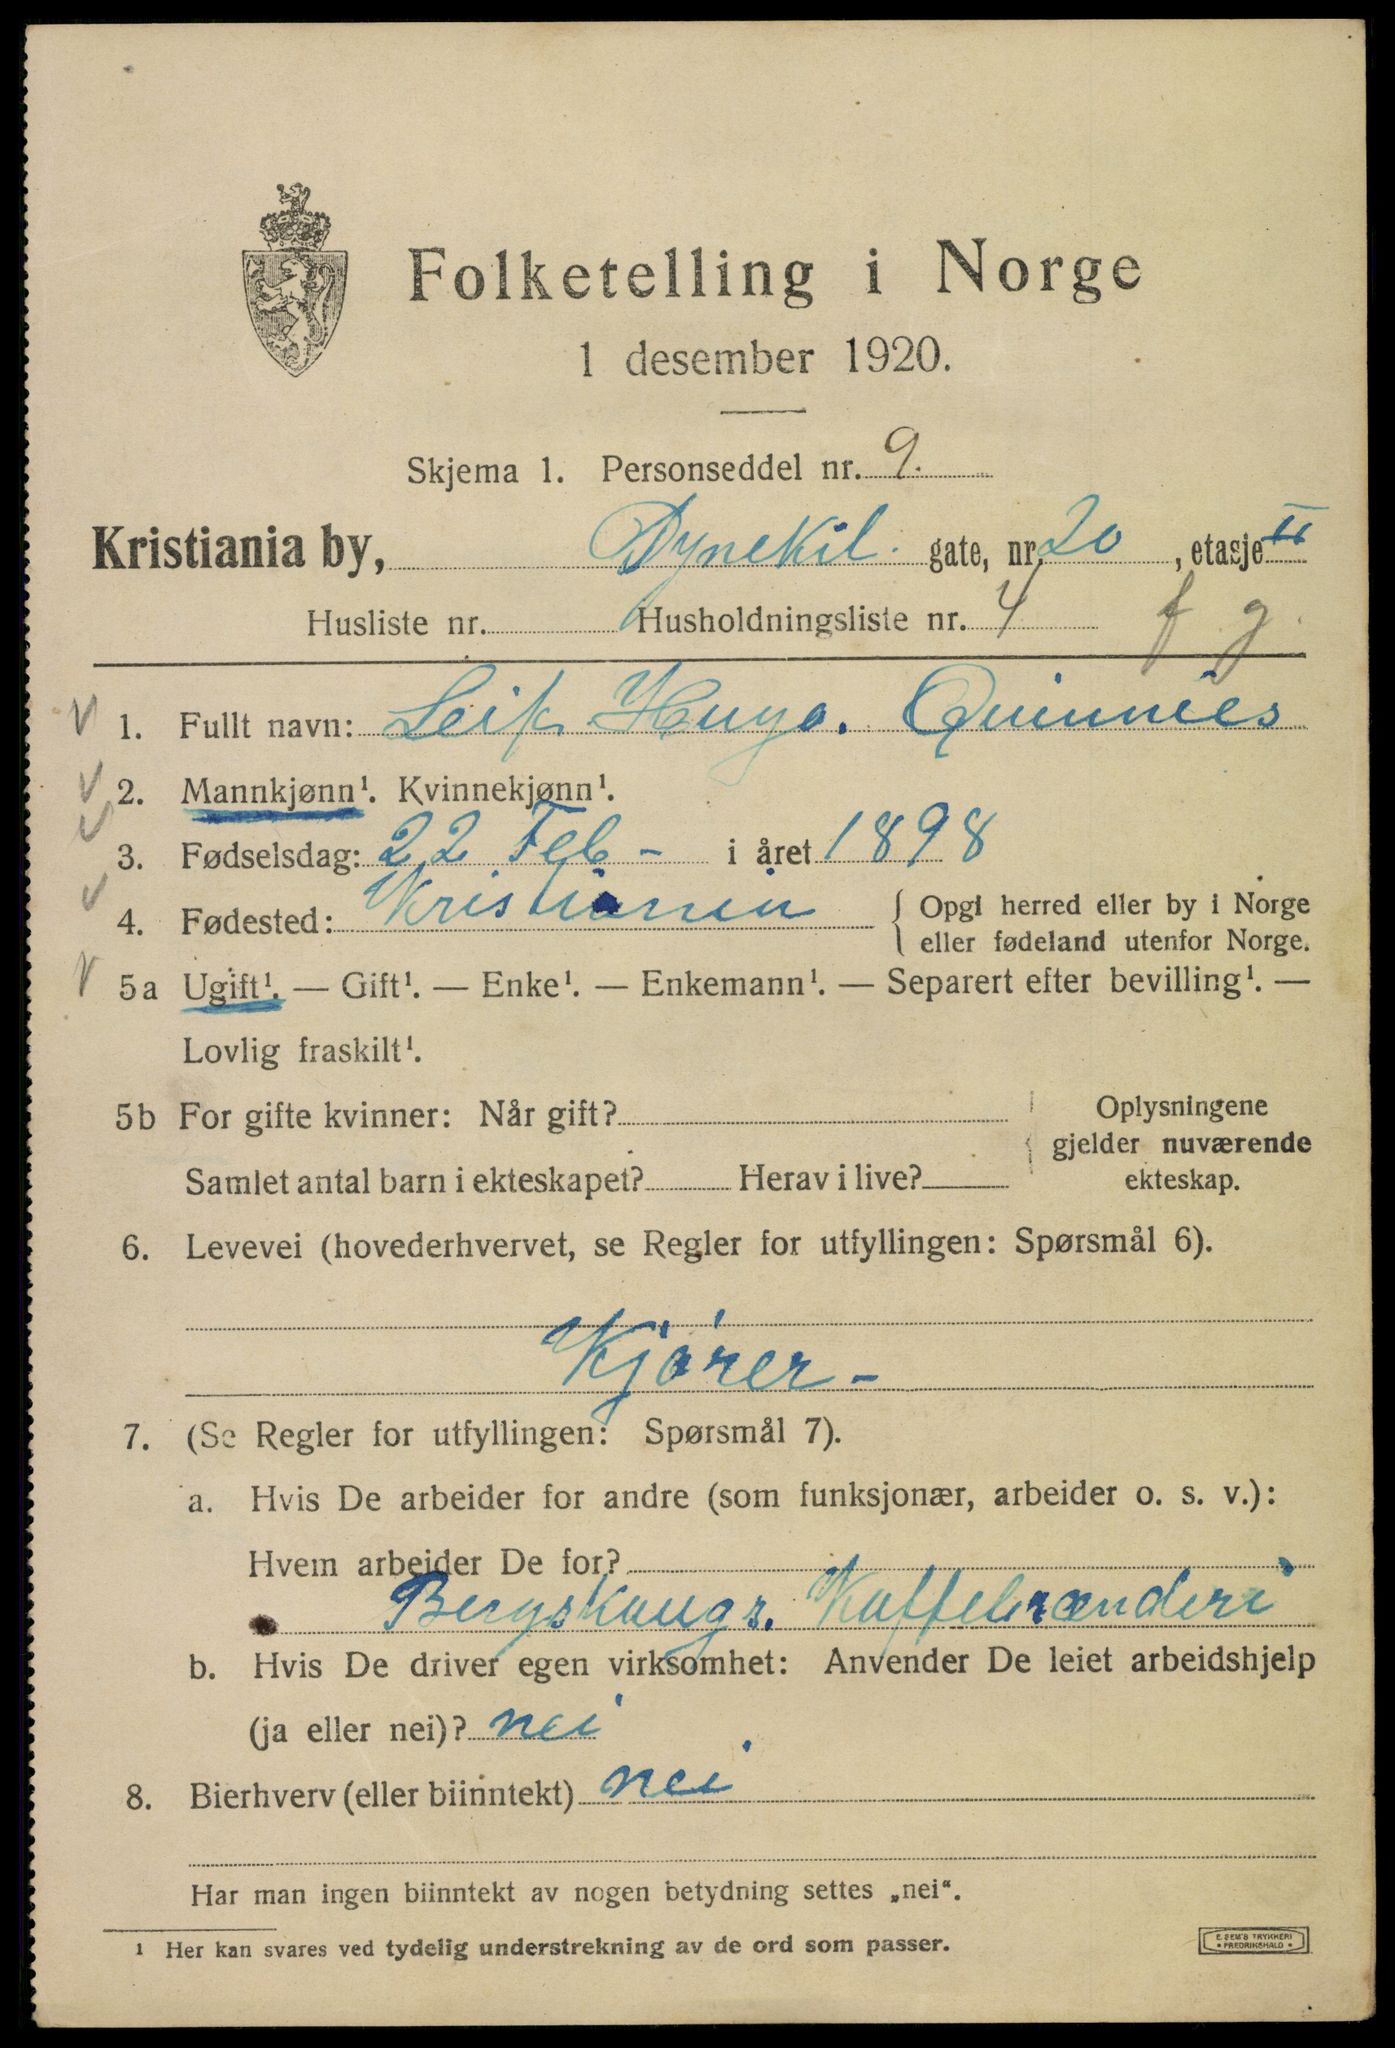 Folketelling i Norge
1 desember 1920.
Skjema 1. Personseddel nr. 9.
Kristiania by, Dynekil. gate, nr. 20, etasje II
Husliste nr. Husholdningsliste nr. 4 f g
1. Fullt navn: Leif Hugo. Quinnies
2. Mannkjønn¹. Kvinnekjønn¹.
3. Fødselsdag: 22 Feb - i året 1898
4. Fødested: Kristiania { Opgi herred eller by i Norge
eller fødeland utenfor Norge.
5a Ugift¹. — Gift¹. — Enke¹. — Enkemann¹. — Separert efter bevilling¹. —
Lovlig fraskilt¹.
5b For gifte kvinner: Når gift? Oplysningene
gjelder nuværende
Samlet antal barn i ekteskapet? Herav i live? ekteskap.
6. Levevei (hovederhvervet, se Regler for utfyllingen: Spørsmål 6).
Kjører -
7. (Se Regler for utfyllingen: Spørsmål 7).
a. Hvis De arbeider for andre (som funksjonær, arbeider o. s. v.):
Hvem arbeider De for?
Bergskaugs. Kaffebrænderi
b. Hvis De driver egen virksomhet: Anvender De leiet arbeidshjelp
(ja eller nei)? nei
8. Bierhverv (eller biinntekt) nei
Har man ingen biinntekt av nogen betydning settes „nei“.
¹ Her kan svares ved tydelig understrekning av de ord som passer.
E. SEM'S TRYKKERI
• FREDRIKSHALD •